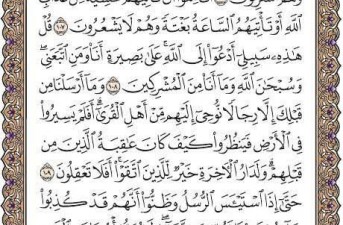 ٱللَّهِ أَوۡ تَأۡتِيَهُمُ ٱلسَّاعَةُ بَغۡتَةٗ وَهُمۡ لَا يَشۡعُرُونَ ١٠٧ قُلۡ
هَٰذِهِۦ سَبِيلِيٓ أَدۡعُوٓاْ إِلَى ٱللَّهِۚ عَلَىٰ بَصِيرَةٍ أَنَا۠ وَمَنِ ٱتَّبَعَنِيۖ
وَسُبۡحَٰنَ ٱللَّهِ وَمَآ أَنَا۠ مِنَ ٱلۡمُشۡرِكِينَ ١٠٨ وَمَآ أَرۡسَلۡنَا مِن
قَبۡلِكَ إِلَّا رِجَالٗا نُّوحِيٓ إِلَيۡهِم مِّنۡ أَهۡلِ ٱلۡقُرَىٰٓۗ أَفَلَمۡ يَسِيرُواْ
فِي ٱلۡأَرۡضِ فَيَنظُرُواْ كَيۡفَ كَانَ عَٰقِبَةُ ٱلَّذِينَ مِن
قَبۡلِهِمۡۗ وَلَدَارُ ٱلۡأٓخِرَةِ خَيۡرٞ لِّلَّذِينَ ٱتَّقَوۡاْۚ أَفَلَا تَعۡقِلُونَ ١٠٩
حَتَّىٰٓ إِذَا ٱسۡتَيۡـَٔسَ ٱلرُّسُلُ وَظَنُّوٓاْ أَنَّهُمۡ قَدۡ كُذِبُواْ